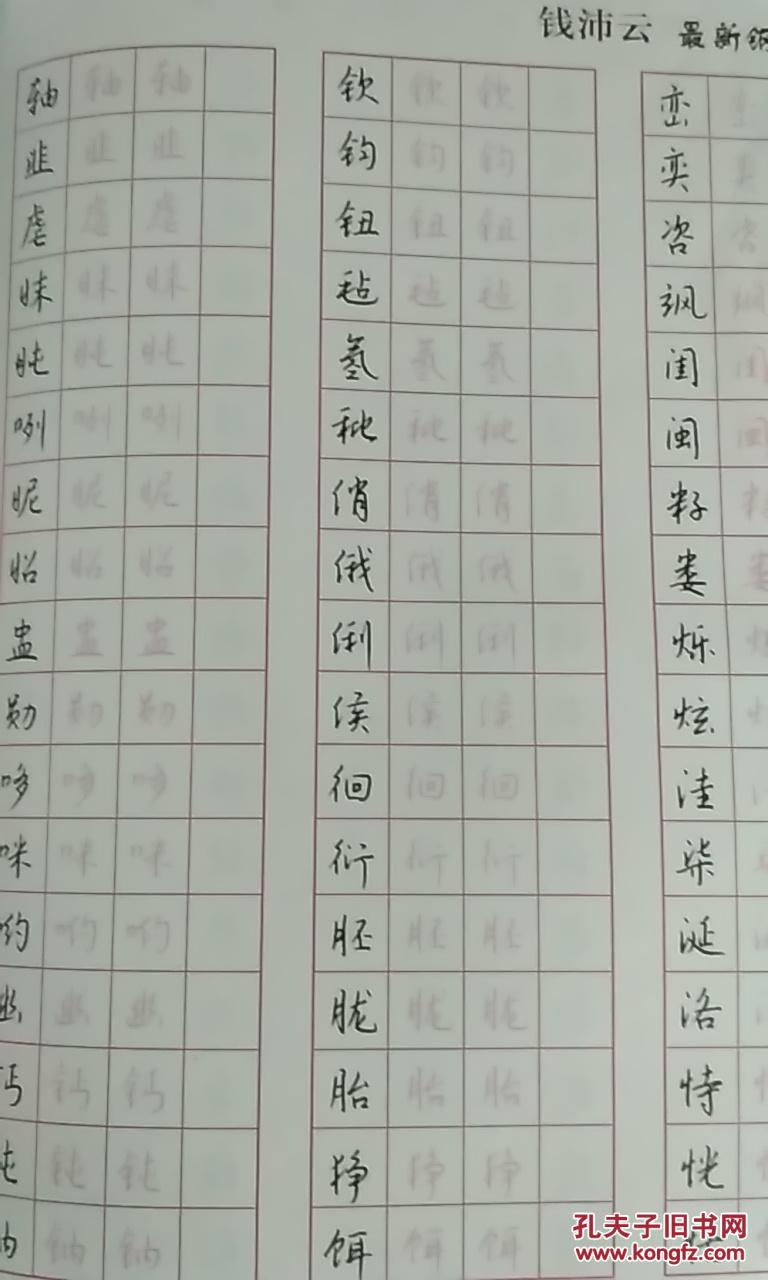 钱沛云 最新钢
轴 轴 轴
韭 韭 韭
虐 虐 虐
昧 昧 昧
盹 盹 盹
咧 咧 咧
昵 昵 昵
昭 昭 昭
盅 盅 盅
勋 勋 勋
哆 哆 哆
咪 咪 咪
哟 哟 哟
幽 幽 幽
钙 钙 钙
钝 钝 钝
钠 钠 钠
钦 钦 钦
钧 钧 钧
钮 钮 钮
毡 毡 毡
氢 氢 氢
秕 秕 秕
俏 俏 俏
俄 俄 俄
俐 俐 俐
侯 侯 侯
徊 徊 徊
衍 衍 衍
胚 胚 胚
胧 胧 胧
胎 胎 胎
狰 狰 狰
饵 饵 饵
峦
奕
咨
飒
闺
闽
籽
娄
烁
炫
洼
柒
涎
洛
恃
恍
孔夫子旧书网
www.kongfz.com